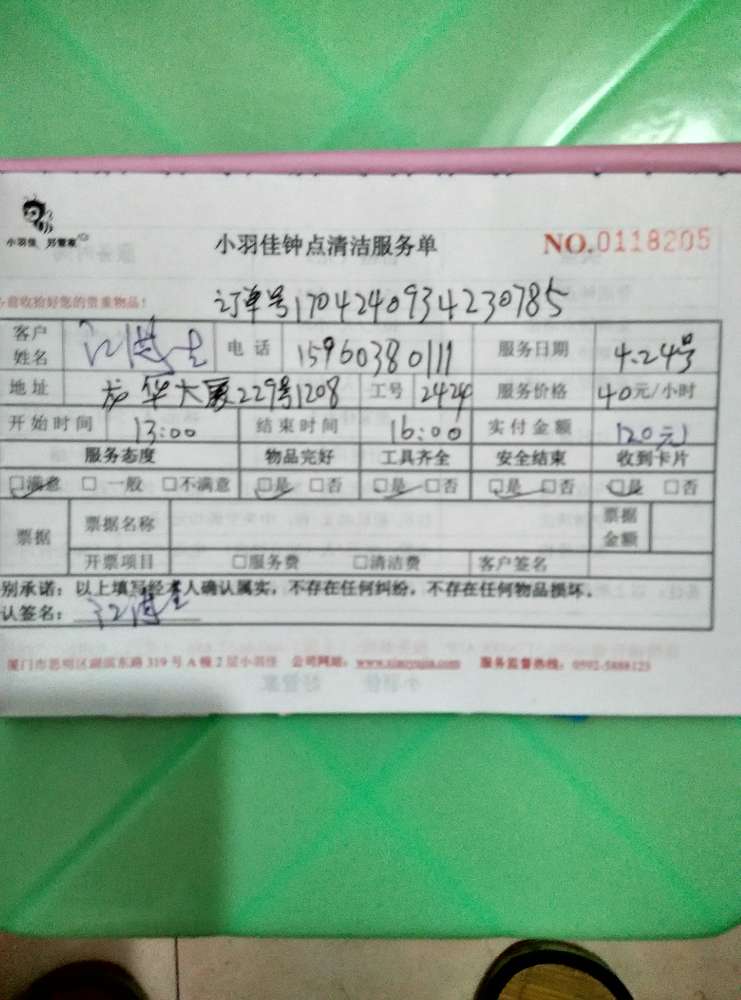 小羽佳 好管家
小羽佳钟点清洁服务单 NO.0118205
收拾好您的贵重物品! 订单号170424093423 0785
客户姓名 电话 15960380111 服务日期 4.24号
地址 龙华大厦229号1208 工号 2424 服务价格 40元/小时
开始时间 13:00 结束时间 16:00 实付金额 120元
服务态度 物品完好 工具齐全 安全结束 收到卡片
□满意 □一般 □不满意 □是 □否 □是 □否 □是 □否 □是 □否
票据 票据名称 票据金额
开票项目 □服务费 □清洁费 客户签名
别承诺：以上填写经本人确认属实，不存在任何纠纷，不存在任何物品损坏。
认签名：
厦门市思明区湖滨东路319号A幢2层小羽佳 公司网站： 服务监督热线：0592-5888123